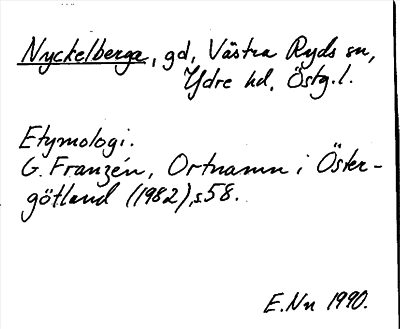 Nyckelberga, gd, Västra Ryds sn,
Ydre hd, Östg.l.
Etymologi.
G. Franzén, Ortnamn i Öster-
götland (1982), s 58.
E. Nn 1990.